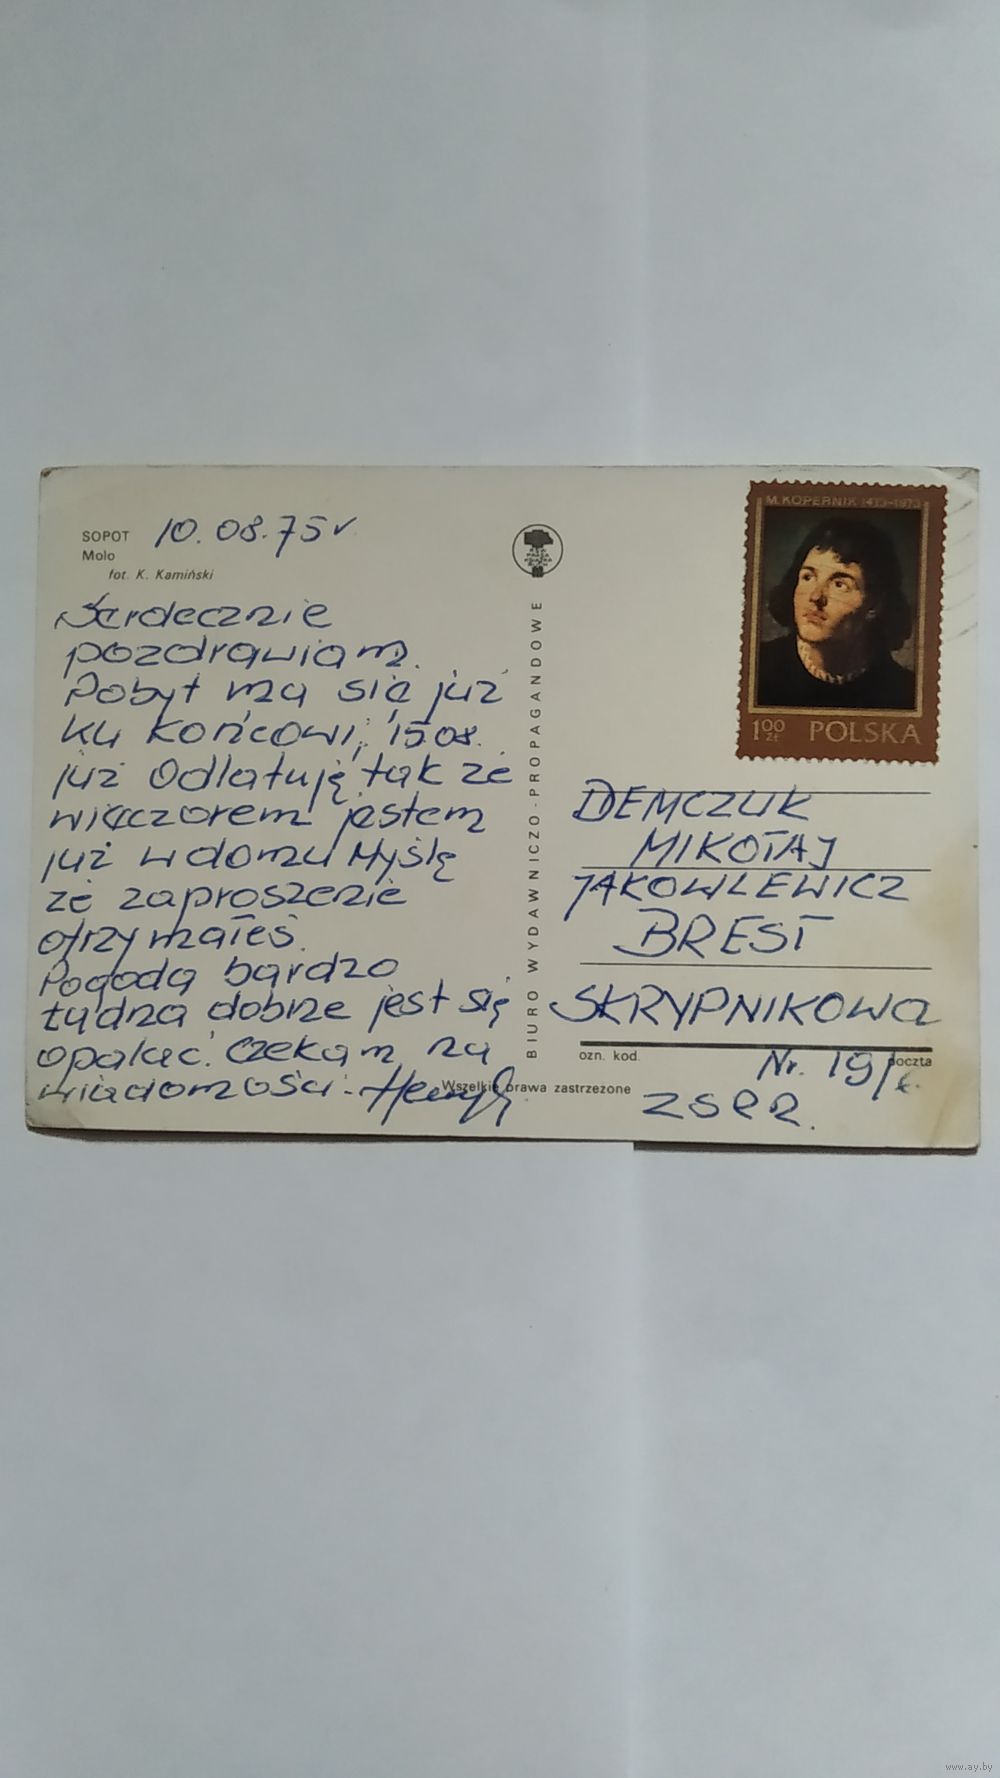 SOPOT 10.08.75 r
Molo
fot. K. Kamiński
Serdecznie
pozdrawiam.
Pobyt ma się już
ku końcowi, 15.08.
już odlatuję, tak że
wieczorem jestem
już w domu Myślę
że zaproszenie
otrzymałeś.
Pogoda bardzo
ładna dobrze jest się
opalać. Czekam na
wiadomości.
BIURO WYDAWNICZO-PROPAGANDOWE
Wszelkie prawa zastrzeżone
M. KOPERNIK 1473-1973
1 00 zł POLSKA
DEMCZUK
MIKOŁAJ
JAKOWLEWICZ
BREST
SKRYPNIKOWA
ozn. kod. poczta
Nr. 19/
ZSRR.
www.ay.by